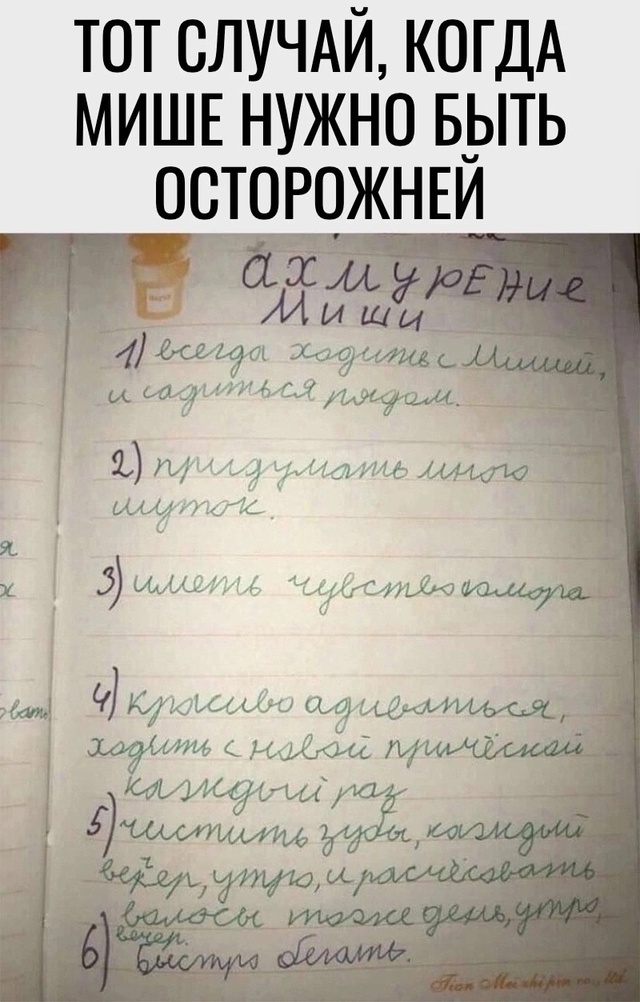 ТОТ СЛУЧАЙ, КОГДА
МИШЕ НУЖНО БЫТЬ
ОСТОРОЖНЕЙ
ахмурЕние
Миши
1) всегда ходить с Мишей,
и садиться рядом.
2) придумать много
шуток.
3) иметь чувство юмора
4) красиво адиваться,
ходить с новой причёской
каждый раз
5) чистить зубы, каждый
вечер, утро, и расчёсовать
волосы тоже день, утро,
вечер.
6) Быстро бегать.
я
х
овать
Tian Mei zhi pin co., ltd.